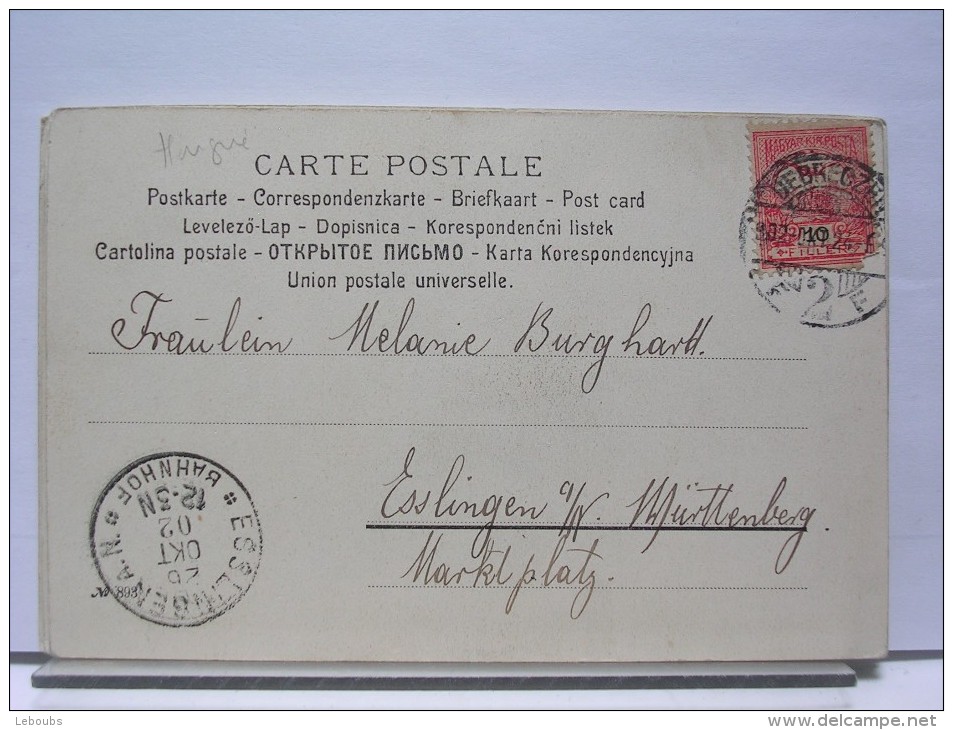 CARTE POSTALE
Postkarte - Correspondenzkarte - Briefkaart - Post card
Levelező-Lap - Dopisnica - Korespondenční listek
Cartolina postale - ОТКРЫТОЕ ПИСЬМО - Karta Korespondencyjna
Union postale universelle.
MAGYAR KIR. POSTA
10
FILLÉR
DEBRECZEN
2
Fräulein Melanie Burghard.
Esslingen a/N. Württenberg.
Marktplatz.
ESSLINGEN A.N.
26
OKT
02
12-3N
BAHNHOF
№ 893
Leboubs
www.delcampe.net